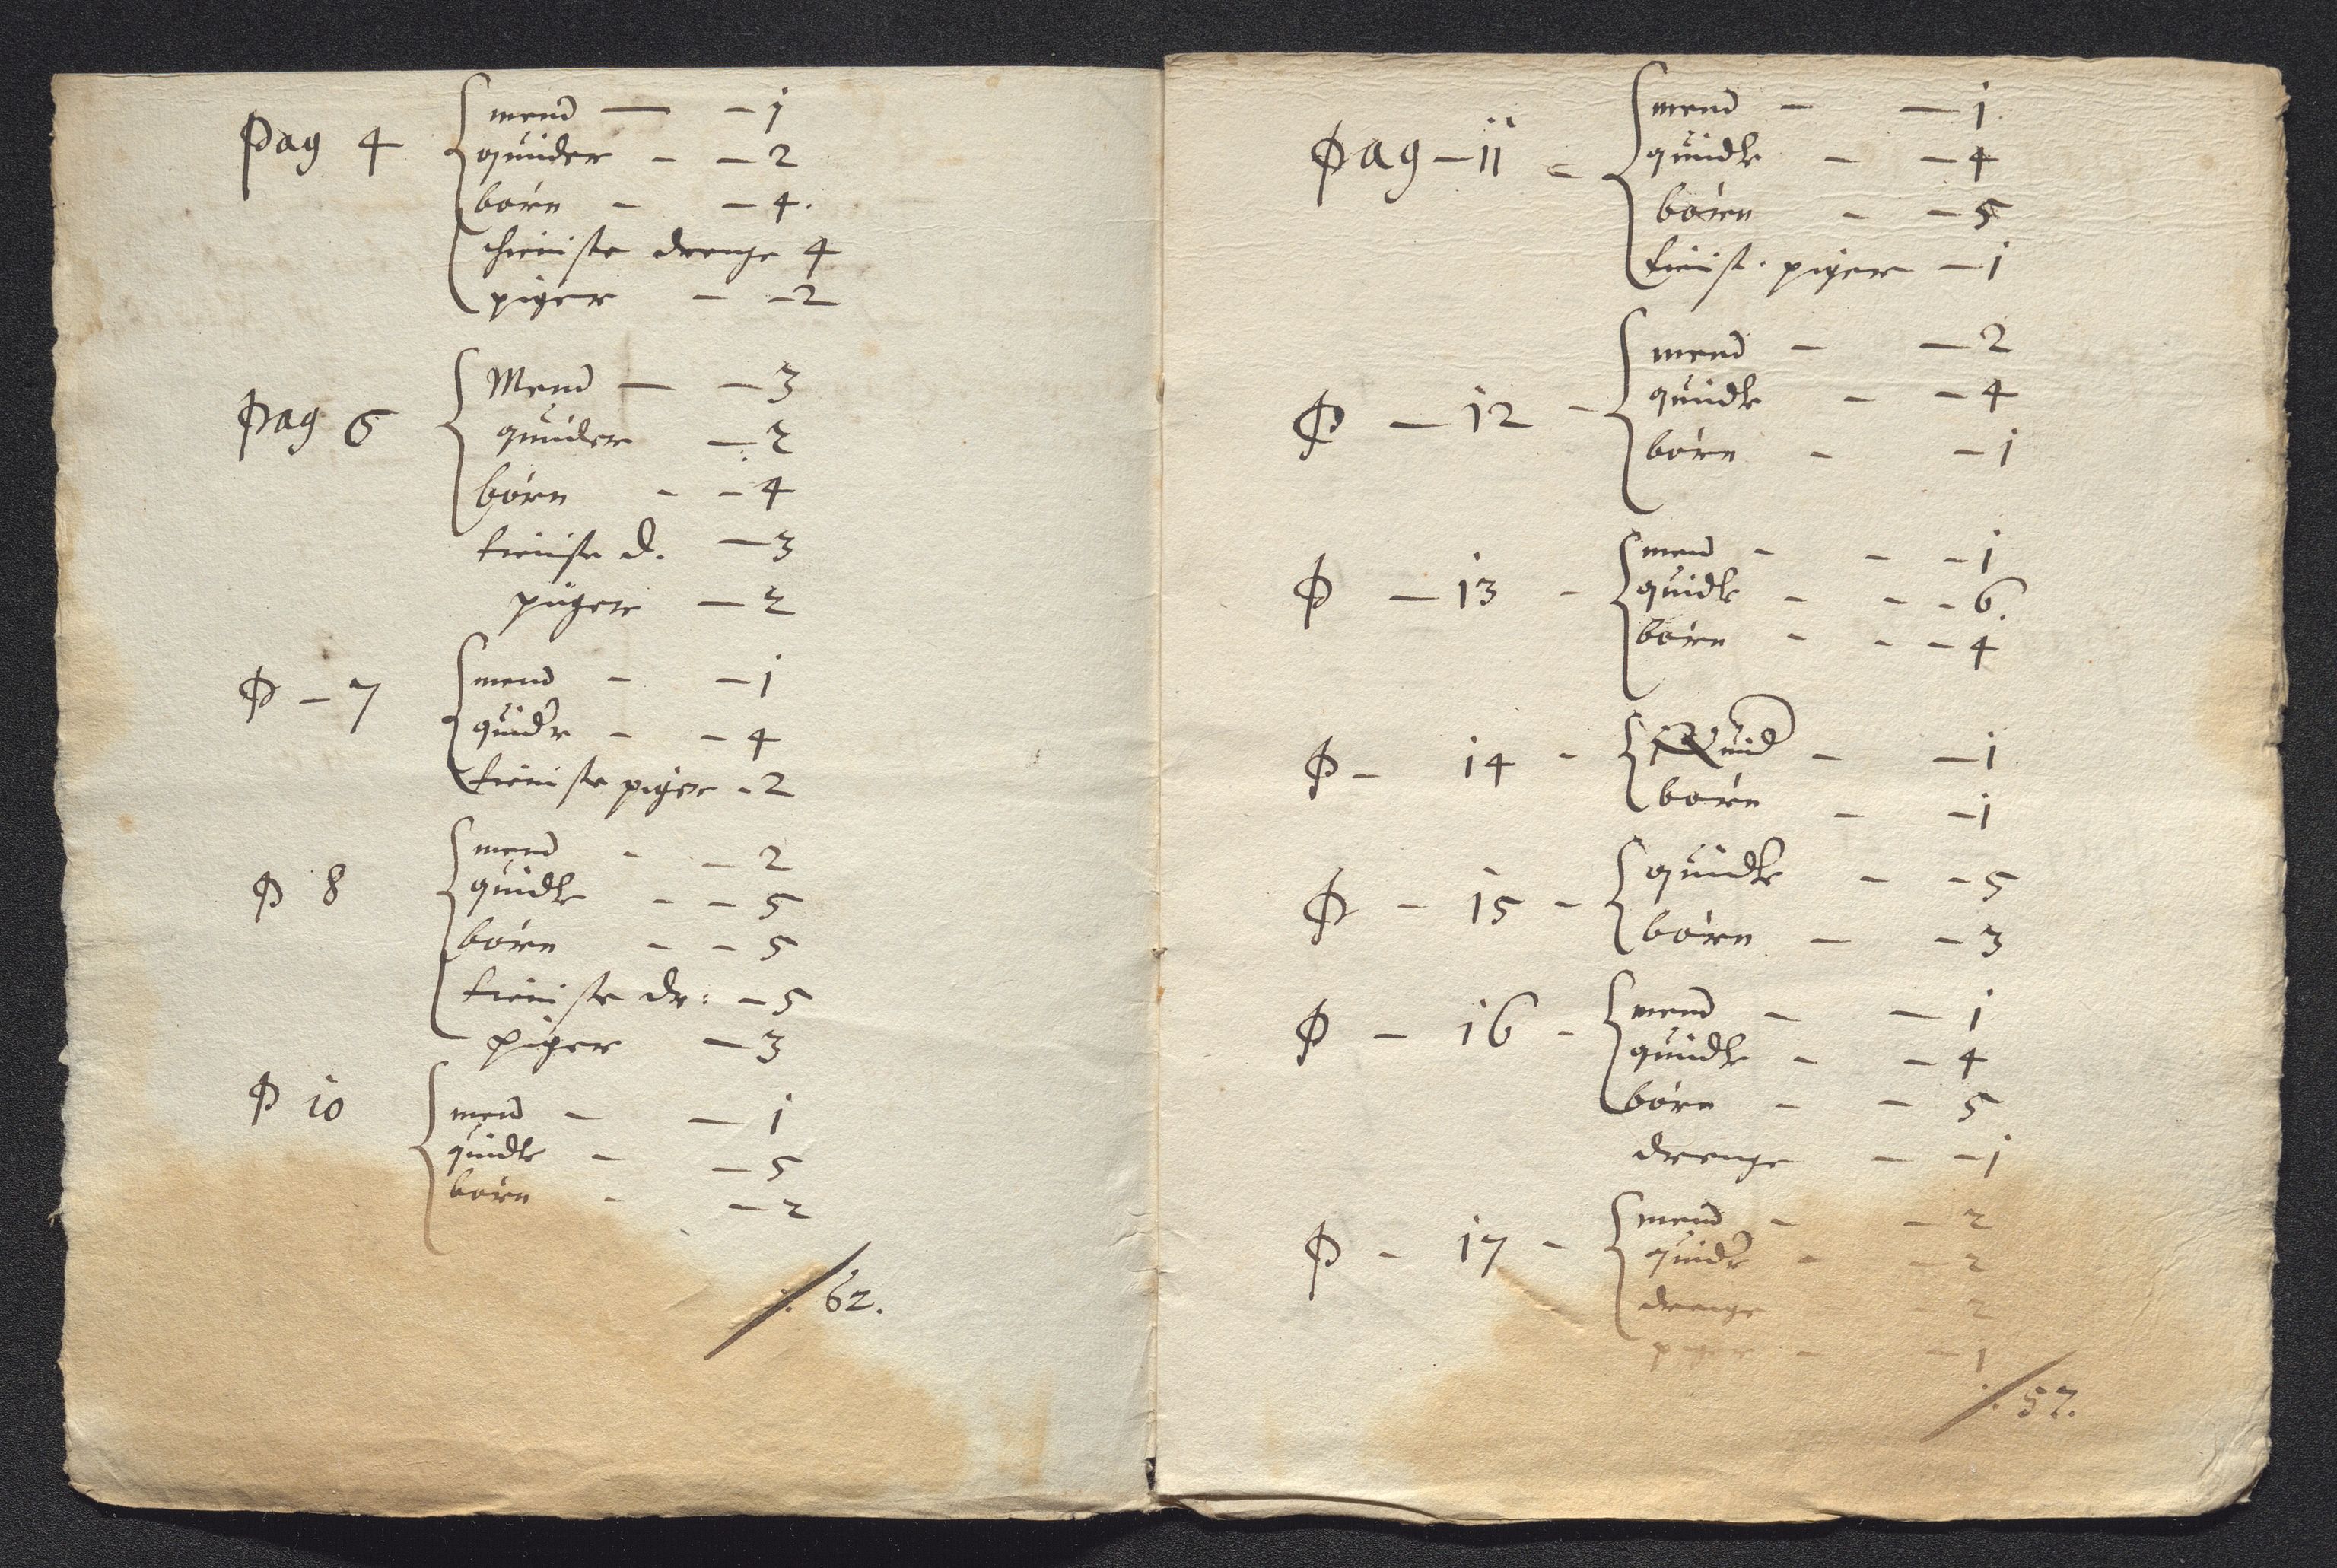 Pag 4
mend — — 1
quinder — — 2
börn — — 4.
thieniste drenge 4
piger — — 2
Pag 6
Mend — — 3
quinder — 2
börn — — 4
tieniste d. — 3
piger — 2
P — 7
mend — — 1
quindr — — 4
tieniste piger — 2
P 8
mend — — 2
quidhr — — 5
börn — — 5
tieniste dr: — 5
piger — 3
P 10
mend — — 1
quidhr — — 5
börn — — 2
/. 62.
Pag — 11 —
mend — — 1
quidhr — — 4
börn — — 5
tienist. piger — 1
P — 12 —
mend — — 2
quidhr — — 4
börn — — 1
P — 13 —
mend — — — 1
quidhr — — — 6.
börn — — — 4
P — 14 —
Quid — — 1
börn — — 1
P — 15 —
quidhr — — 5
börn — — 3
P — 16 —
mend — — 1
quidhr — — 4
börn — — 5
drenge — — 1
P — 17 —
mend — — 2
quindr — — 2
drenge — — 2
piger — — 1
/. 57.